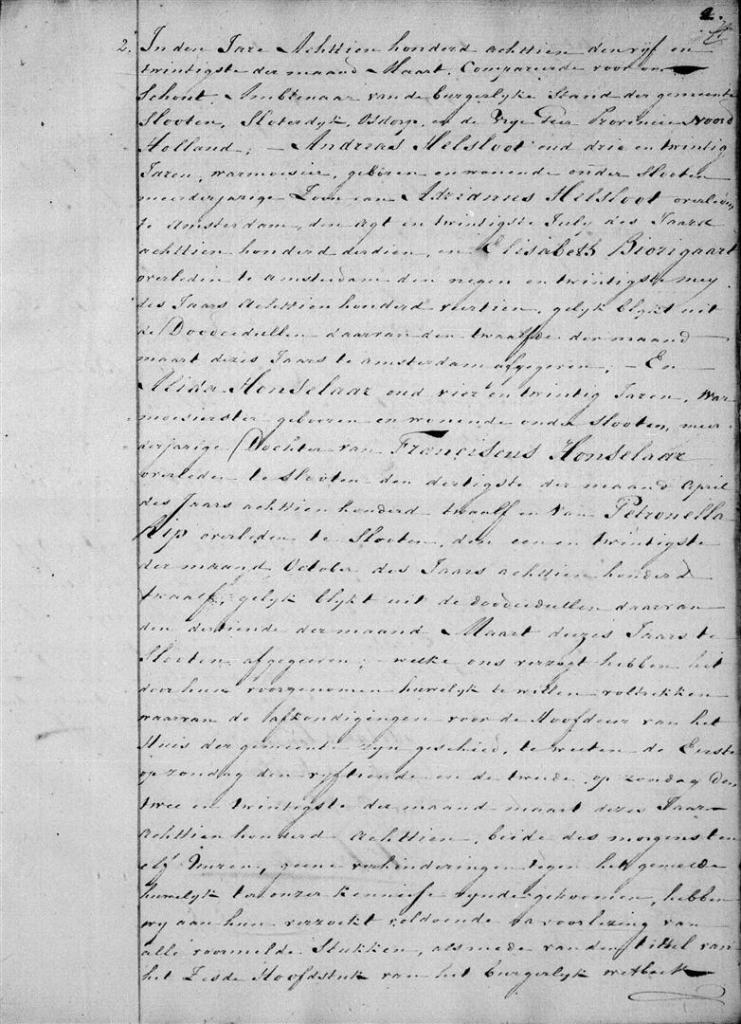 2.
2. In den Jare Achttien honderd achttien den vyf en
twintigste der maand Maart, Compareerde voor ons
Schout, Ambtenaar van de burgerlyke Stand der gemeente
Slooten, Sloterdyk, Osdorp, en de Vrye Geer Provincie Noord
Holland; — Andreas Helsloot oud drie en twintig
Jaren, warmoesier, geboren en wonende onder Slooten
meerderjarige Zoon van Adrianus Helsloot overleden
te Amsterdam, den agt en twintigste July des Jaars
achttien honderd dertien, en Elisabeth Biorigaart
overleden te amsterdam den negen en twintigste mey
des Jaars Achttien honderd veertien, gelyk blykt uit
de Doodcedullen daarvan den twaalfde der maand
maart dezes Jaars te amsterdam afgegeven; — En
Alida Honselaar oud vier en twintig Jaren, War-
moesierster geboren en wonende onder Slooten, meer-
derjarige Dochter van Franciscus Honselaar
overleden te Slooten den dertigste der maand April
des Jaars achttien honderd twaalf en van Petronella
Rip overleden te Slooten, den een en twintigste
der maand October des Jaars achttien honderd
twaalf, gelyk blykt uit de doodcedullen daarvan
den dertiende der maand Maart dezes Jaars te
Slooten afgegeven; — welke ons verzogt hebben het
door hun voorgenomen huwelyk te willen voltrekken
waarvan de afkondigingen voor de Hoofdeur van het
Huis der gemeente zyn geschied, te weeten de Eerste
op zondag den vyftiende en de tweede op zondag den
twee en twintigste der maand maart dezes Jaars
Achttien honderd Achttien, beide des morgens ten
elf Uuren, geene verhinderingen tegen het gemelde
huwelyk ter onzer kennisse zynde gekoomen, hebben
wy aan hun verzoekt voldoende na voorlezing van
alle voormelde Stukken, alsmede van den tittel van
het Zesde Hoofdstuk van het burgerlyk wetboek